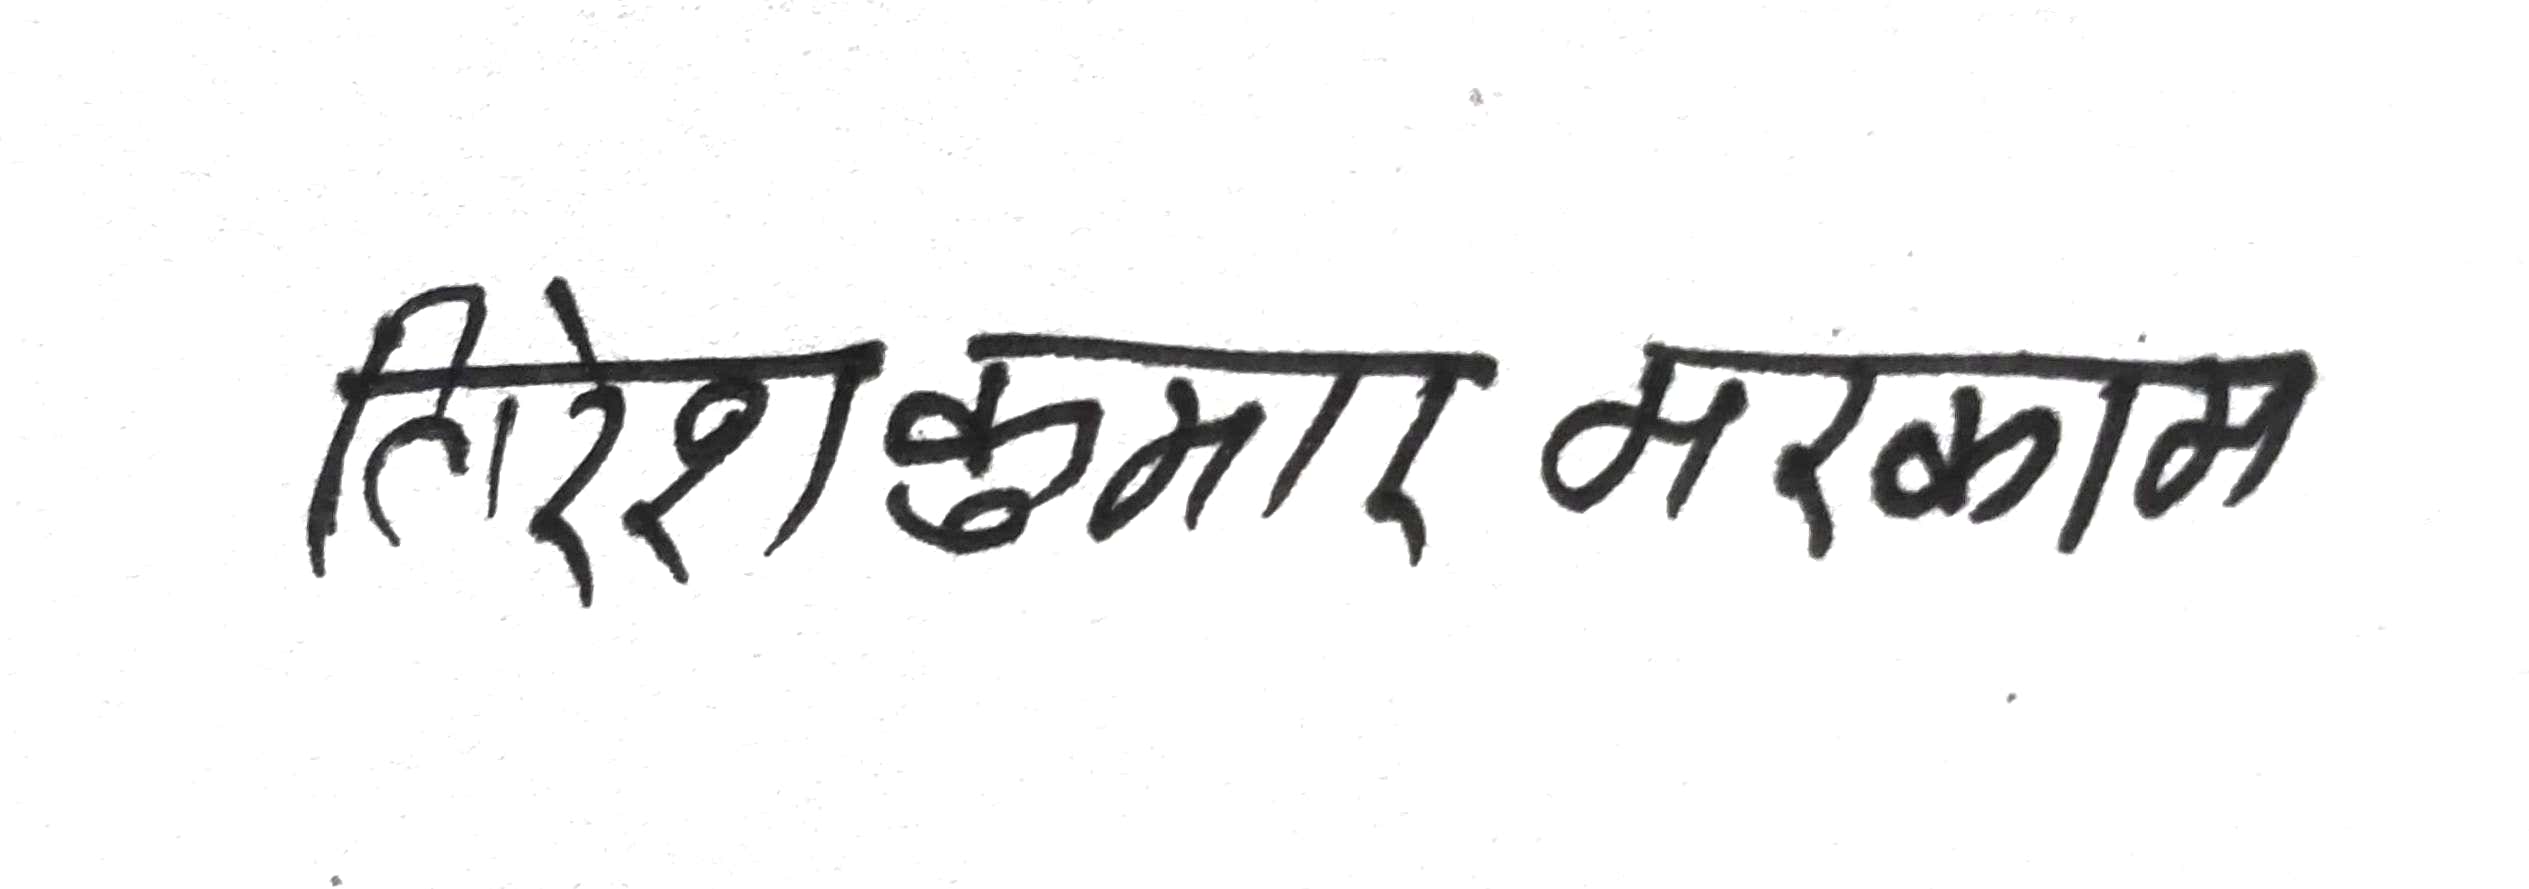 लिरेश कुमार मरकाम